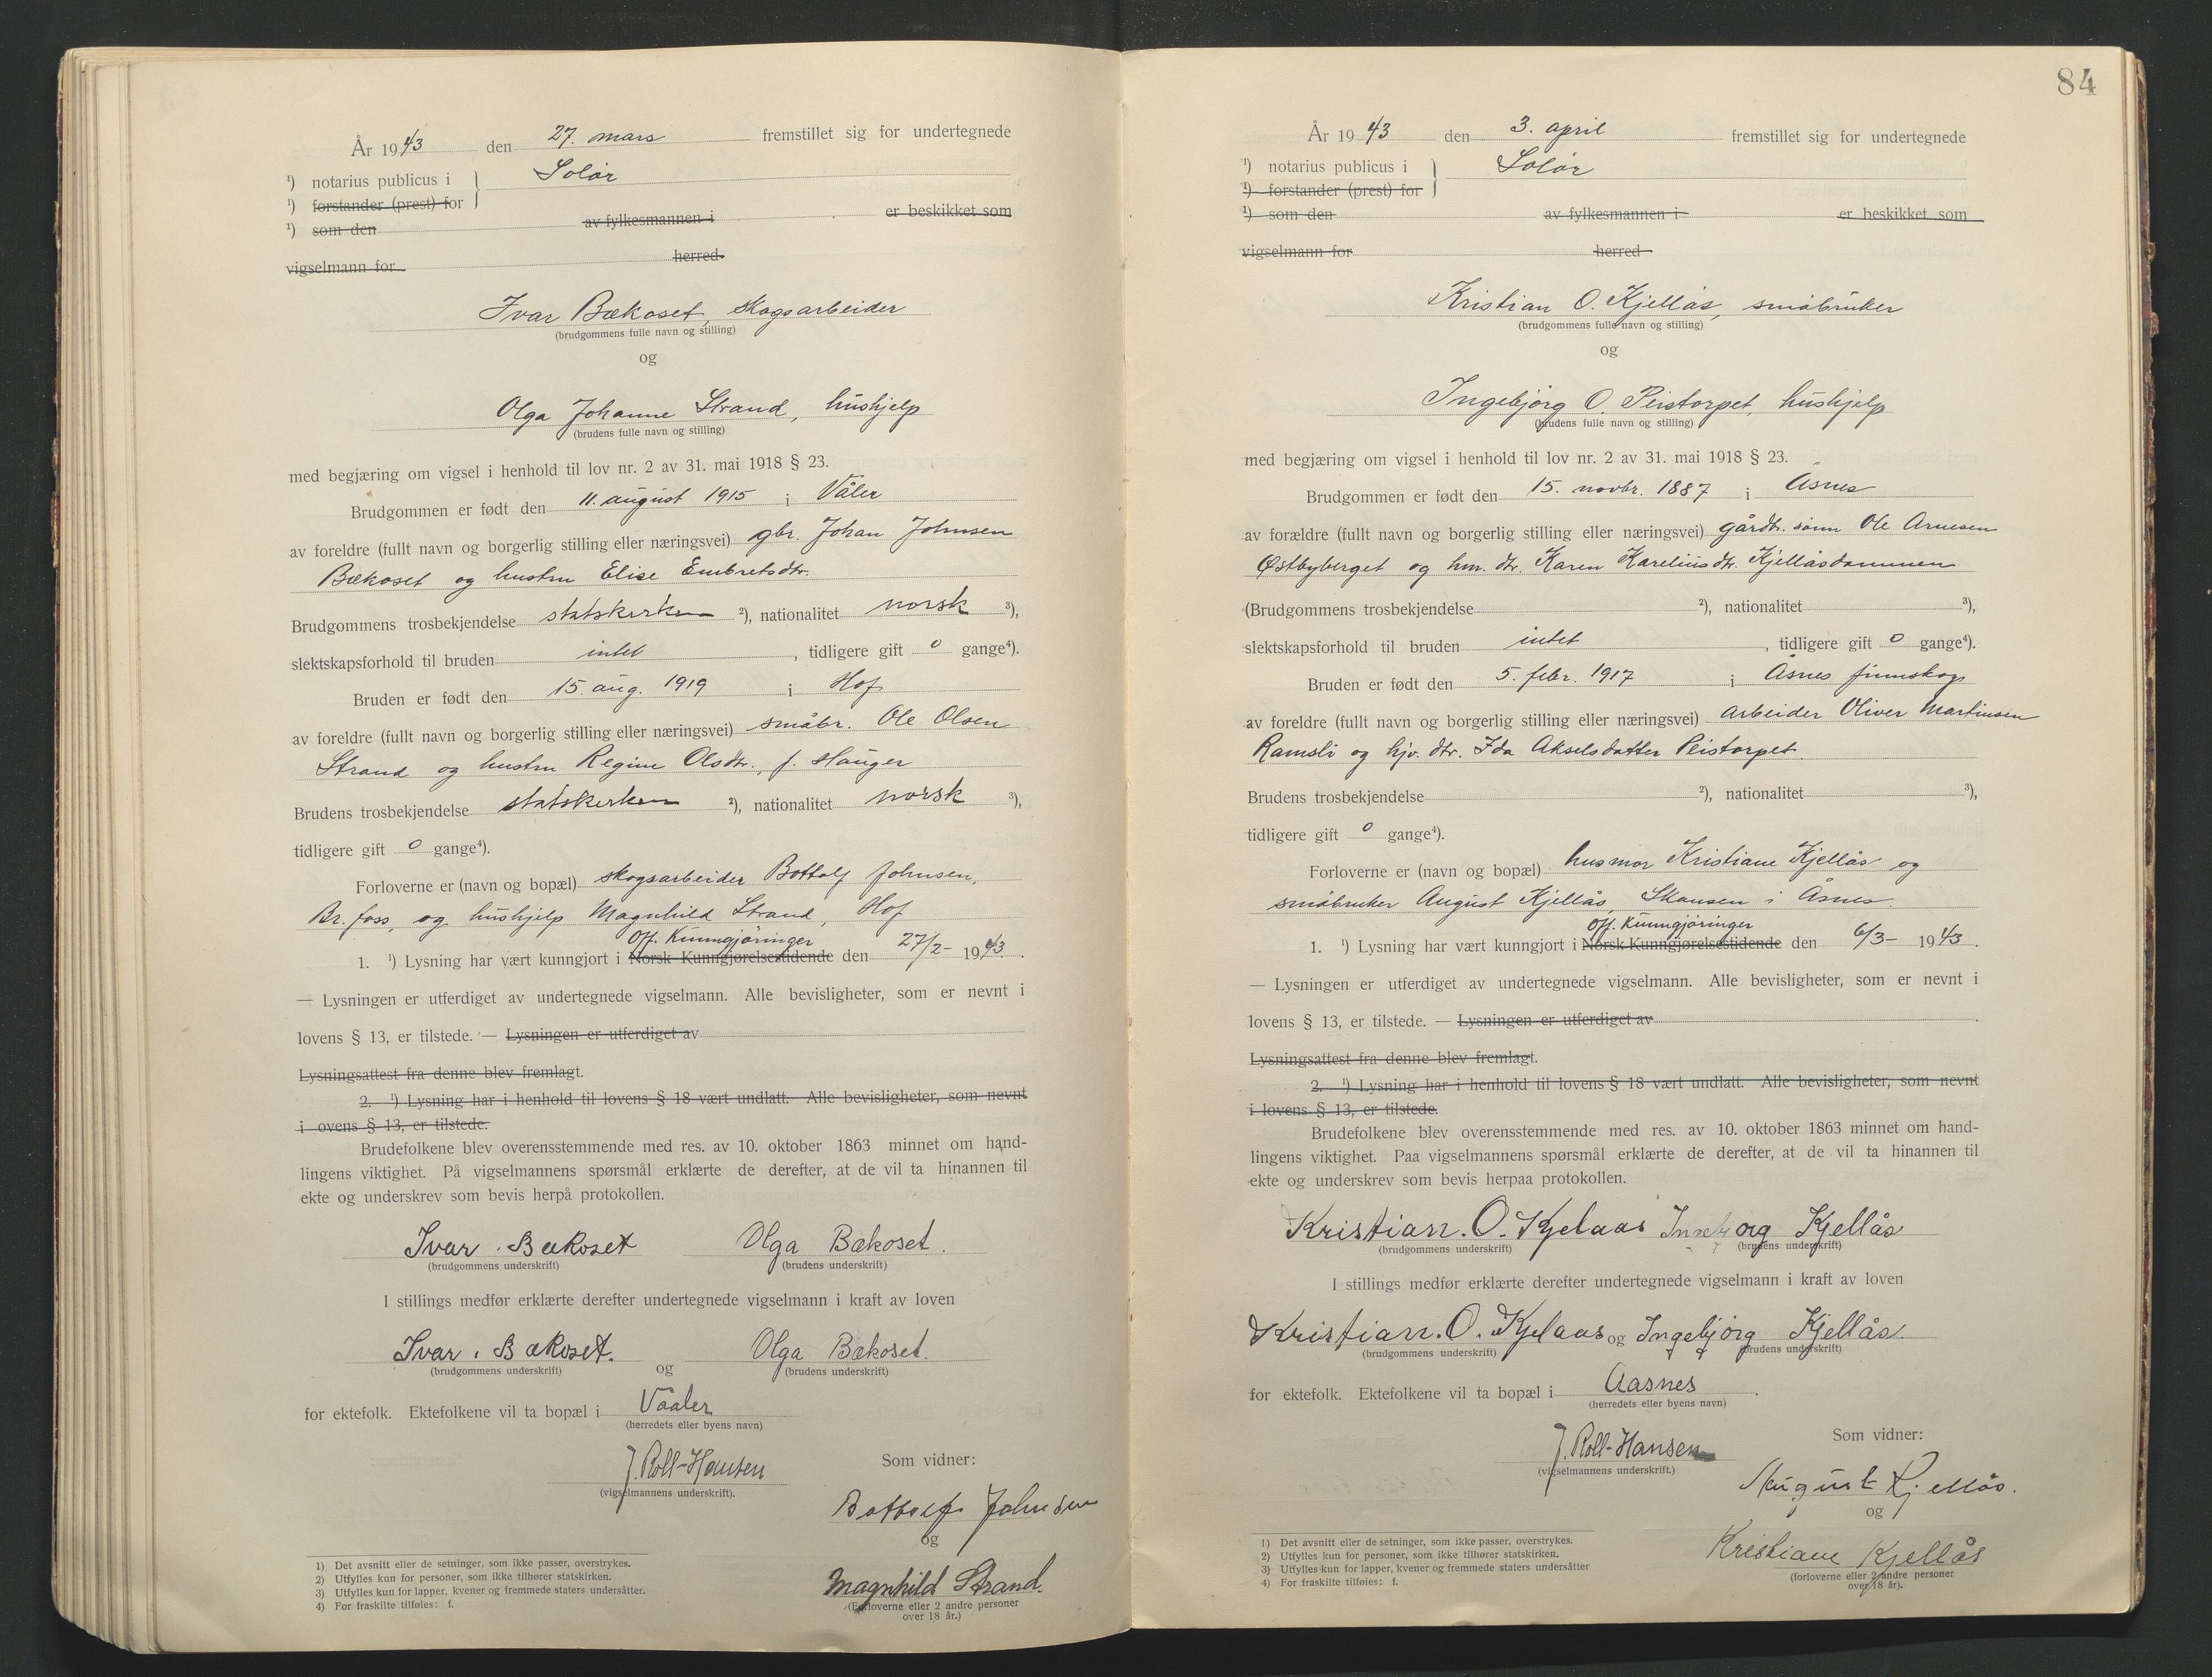 År 1943 den 27. mars fremstillet sig for undertegnede
¹) notarius publicus i Solør
¹) forstander (prest) for
¹) som den av fylkesmannen i er beskikket som
vigselmann for herred
Ivar Bækoset, skogsarbeider
(brudgommens fulle navn og stilling)
og
Olga Johanne Strand, hushjelp
(brudens fulle navn og stilling)
med begjæring om vigsel i henhold til lov nr. 2 av 31. mai 1918 § 23.
Brudgommen er født den 11. august 1915 i Våler
av foreldre (fullt navn og borgerlig stilling eller næringsvei) gbr. Johan Johnsen
Bækoset og hustru Elise Embretsdtr.
Brudgommens trosbekjendelse statskirken ²), nationalitet norsk ³),
slektskapsforhold til bruden intet, tidligere gift 0 gange⁴).
Bruden er født den 15. aug. 1919 i Hof
av foreldre (fullt navn og borgerlig stilling eller næringsvei) småbr. Ole Olsen
Strand og hustru Regine Olsdtr., f. Hauger
Brudens trosbekjendelse statskirken ²), nationalitet norsk ³),
tidligere gift 0 gange⁴).
Forloverne er (navn og bopæl) skogsarbeider Bottolf Johnsen,
Br. foss, og hushjelp Magnhild Strand, Hof
Off. Kunngjøringer
1. ¹) Lysning har vært kunngjort i Norsk Kunngjørelsestidende den 27/2- 1943.
— Lysningen er utferdiget av undertegnede vigselmann. Alle bevisligheter, som er nevnt i
lovens § 13, er tilstede. — Lysningen er utferdiget av
Lysningsattest fra denne blev fremlagt.
2. ¹) Lysning har i henhold til lovens § 18 vært undlatt. Alle bevisligheter, som nevnt
i ovens § 13, er tilstede.
Brudefolkene blev overensstemmende med res. av 10. oktober 1863 minnet om hand-
lingens viktighet. På vigselmannens spørsmål erklærte de derefter, at de vil ta hinannen til
ekte og underskrev som bevis herpå protokollen.
Ivar . Bækoset Olga Bækoset.
(brudgommens underskrift) (brudens underskrift)
I stillings medfør erklærte derefter undertegnede vigselmann i kraft av loven
Ivar . Bækoset. og Olga Bækoset.
(brudgommens underskrift) (brudens underskrift)
for ektefolk. Ektefolkene vil ta bopæl i Vaaler
(herredets eller byens navn)
J. Roll-Hansen
(vigselmannens underskrift).
Som vidner:
Bottolf Johnsen
og
Magnhild Strand.
(Forloverne eller 2 andre personer
over 18 år.)
1) Det avsnitt eller de setninger, som ikke passer, overstrykes.
2) Utfylles kun for personer, som ikke tilhører statskirken.
3) Utfylles kun for lapper, kvener og fremmede staters undersåtter.
4) For fraskilte tilføies: f.
84
År 1943 den 3. april fremstillet sig for undertegnede
¹) notarius publicus i Solør
¹) forstander (prest) for
¹) som den av fylkesmannen i er beskikket som
vigselmann for herred
Kristian O. Kjellås, småbruker
(brudgommens fulle navn og stilling)
og
Ingebjørg O. Peistorpet, hushjelp
(brudens fulle navn og stilling)
med begjæring om vigsel i henhold til lov nr. 2 av 31. mai 1918 § 23.
Brudgommen er født den 15. novbr. 1887 i Åsnes
av forældre (fullt navn og borgerlig stilling eller næringsvei) gårdbr. sønn Ole Arnesen
Østbyberget og hm. dtr. Karen Kareliusdtr. Kjellåsdammen
(Brudgommens trosbekjendelse ²), nationalitet ³),
slektskapsforhold til bruden intet, tidligere gift 0 gange⁴).
Bruden er født den 5. febr. 1917 i Åsnes finnskog
av foreldre (fullt navn og borgerlig stilling eller næringsvei) arbeider Oliver Martinsen
Ramsli og hjv. dtr. Ida Akselsdatter Peistorpet.
Brudens trosbekjendelse ²), nationalitet ³),
tidligere gift 0 gange⁴).
Forloverne er (navn og bopæl) husmor Kristiane Kjellås og
småbruker August Kjellås, Skansen i Åsnes.
Off. Kunngjøringer
1. ¹) Lysning har vært kunngjort i Norsk Kunngjørelsestidende den 6/3- 1943.
— Lysningen er utferdiget av undertegnede vigselmann. Alle bevisligheter, som er nevnt i
lovens § 13, er tilstede. — Lysningen er utferdiget av .
Lysningsattest fra denne blev fremlagt.
2. ¹) Lysning har i henhold til lovens § 18 vært undlatt. Alle bevisligheter, som nevnt
i lovens § 13, er tilstede.
Brudefolkene blev overensstemmende med res. av 10. oktober 1863 minnet om hand-
lingens viktighet. Paa vigselmannens spørsmål erklærte de derefter, at de vil ta hinannen til
ekte og underskrev som bevis herpaa protokollen.
Kristian. O. Kjelaas Ingebjørg Kjellås
(brudgommens underskrift) (brudens underskrift)
I stillings medfør erklærte derefter undertegnede vigselmann i kraft av loven
Kristian. O. Kjelaas og Ingebjørg Kjellås.
(brudgommens underskrift) (brudens underskrift)
for ektefolk. Ektefolkene vil ta bopæl i Aasnes .
(herredets eller byens navn)
J. Roll-Hansen
(vigselmannens underskrift.)
Som vidner:
August Kjellås.
og
Kristiane Kjellås
(forloverne eller 2 andre personer
over 18 år).
1) Det avsnitt eller de setninger, som ikke passer, overstrykes.
2) Utfylles kun for personer, som ikke tilhører statskirken.
3) Utfylles kun for lapper, kvener og fremmede staters undersåtter
4) For fraskilte tilføies: f.